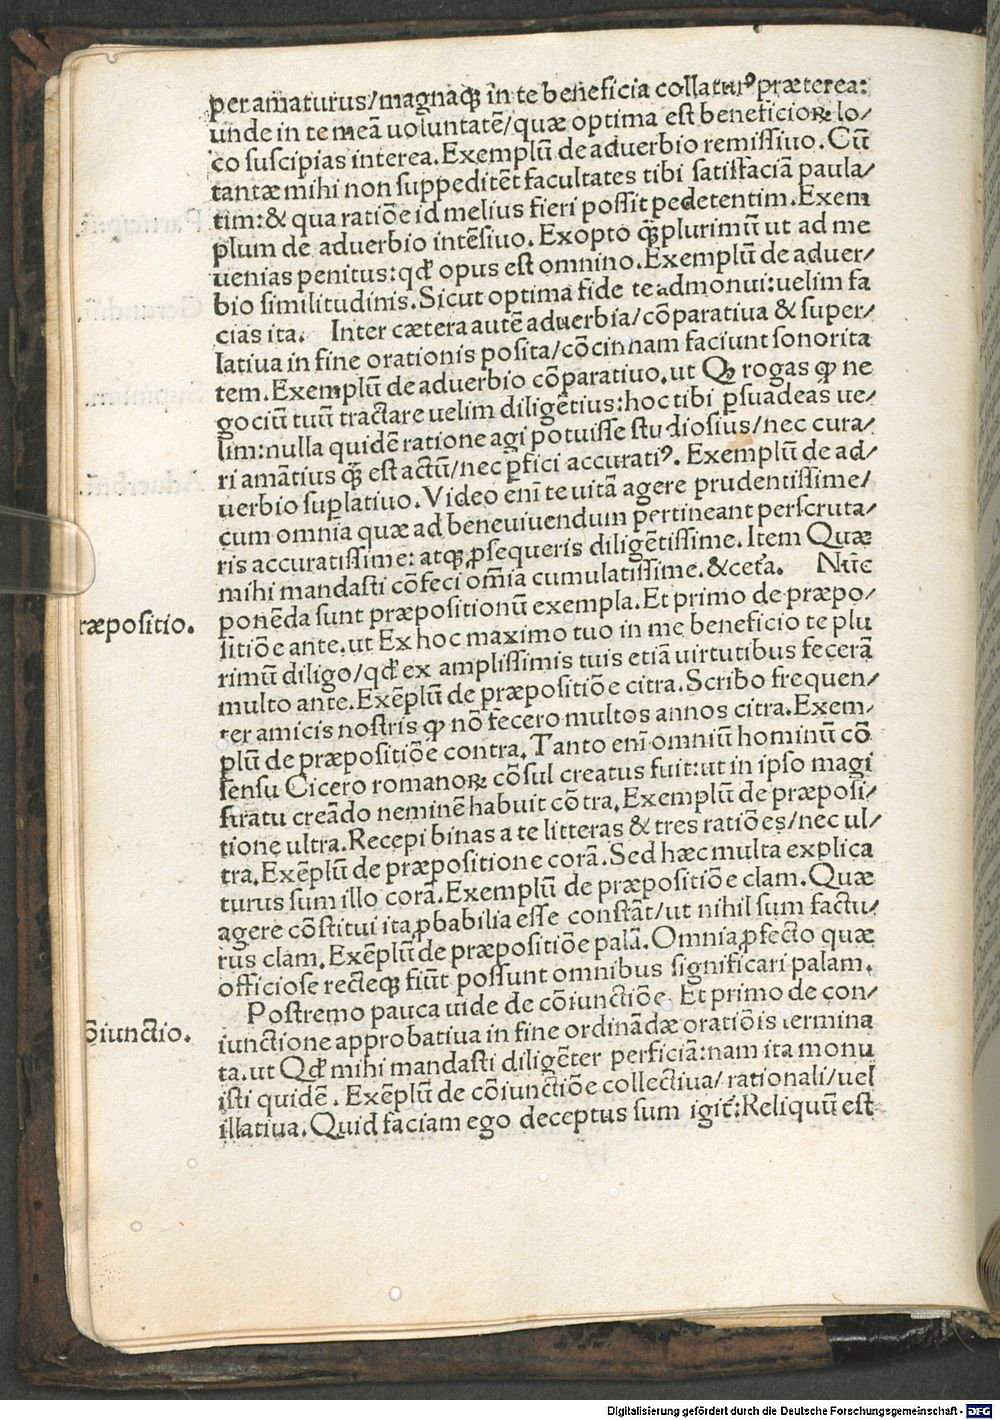 per amaturus/magnaqꝫ in te beneficia collaturꝰ præterea:
unde in te meā uoluntatē/quæ optima est beneficioꝝ lo⸗
co suscipias interea. Exemplū de aduerbio remissiuo. Cū
tantæ mihi non suppeditēt facultates tibi satisfaciā paula⸗
tim: & qua ratiōe id melius fieri possit pedetentim. Exem
plum de aduerbio intēsiuo. Exopto ꝙplurimū ut ad me
uenias penitus: qđ opus est omnino. Exemplū de aduer⸗
bio similitudinis. Sicut optima fide te admonui: uelim fa
cias ita. Inter cætera autē aduerbia/cōparatiua & super⸗
latiua in fine orationis posita/cōcinnam faciunt sonorita
tem. Exemplū de aduerbio cōparatiuo. ut Qꝫ rogas ꝙ ne
gociū tuū tractare uelim diligētius: hoc tibi ꝑsuadeas ue⸗
lim: nulla quidē ratione agi potuisse studiosius/nec cura⸗
ri amātius qꝫ̄ est actū/nec ꝑfici accuratiꝰ. Exemplū de ad⸗
uerbio suꝑlatiuo. Video enī te uitā agere prudentissime/
cum omnia quæ ad beneuiuendum pertineant perscruta⸗
ris accuratissime: atqꝫ ꝓsequeris diligētissime. Item Quæ
mihi mandasti cōfeci om̄ia cumulatissime. & ceťa. Nūc
præpositio.
ponēda sunt præpositionū exempla. Et primo de præpo⸗
sitiōe ante. ut Ex hoc maximo tuo in me beneficio te plu
rimū diligo/qđ ex amplissimis tuis etiā uirtutibus fecerā
multo ante. Exēplū de præpositiōe citra. Scribo frequen⸗
ter amicis nostris ꝙ nō fecero multos annos citra. Exem⸗
plū de præpositiōe contra. Tanto enī omniū hominū cō
sensu Cicero romanoꝝ cōsul creatus fuit: ut in ipso magi
stratu creādo neminē habuit cōtra. Exemplū de præposi⸗
tione ultra. Recepi binas a te litteras & tres ratiōes/nec ul⸗
tra. Exēplū de præpositione corā. Sed hæc multa explica
turus sum illo corā. Exemplū de præpositiōe clam. Quæ
agere cōstitui ita ꝓbabilia esse constāt/ut nihil sum factu⸗
rus clam. Exēplū de præpositiōe palā. Omnia ꝓfecto quæ
officiose recteqꝫ fiūt possunt omnibus significari palam.
Postremo pauca uide de cōiunctiōe. Et primo de con⸗
Cōiunctio.
iunctione approbatiua in fine ordinādæ oratiōis termina
ta. ut Qđ mihi mandasti diligēter perficiā: nam ita monu
isti quidē. Exēplū de cōiunctiōe collectiua/rationali/uel
illatiua. Quid faciam ego deceptus sum igiť: Reliquū est
Digitalisierung gefördert durch die Deutsche Forschungsgemeinschaft - DFG